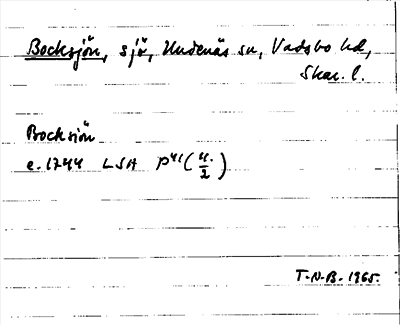 Bocksjön, sjö, Undenäs sn, Vadsbo hd,
Skar. l.
Bocksiön
c. 1744 LSA P41 (4/2)
T-N-B- 1965.